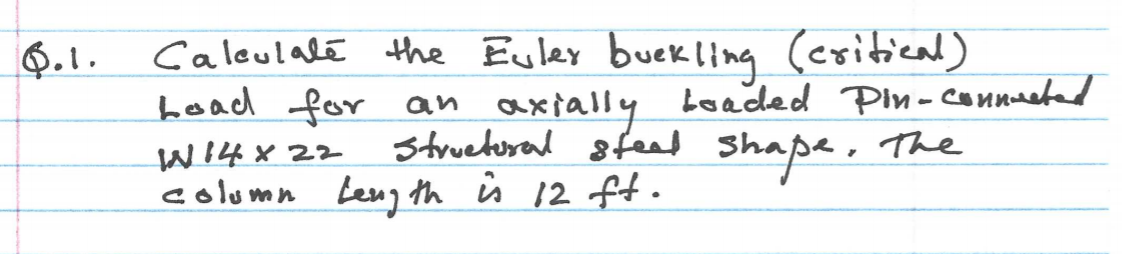 Q.1. Calculate the Euler buckling (critical)
Load for an axially Loaded Pin-connected
W14 x 22 structural steel shape. The
column Length is 12 ft.